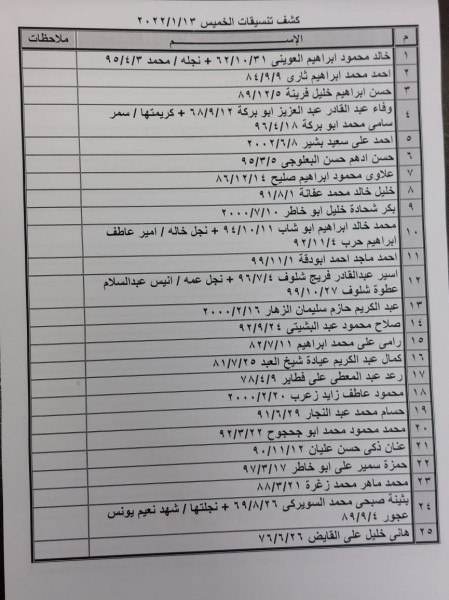 كشف تنسيقات الخميس ٢٠٢٢/١/١٣
م الإســـــم ملاحظات
١ خالد محمود ابراهيم العوينى ٦٢/١٠/٣١ + نجله / محمد ٩٥/٤/٣
٢ احمد محمد ابراهيم ثارى ٨٤/٩/٩
٣ حسن ابراهيم خليل فرينة ٨٩/١٢/٥
٤ وفاء عبد القادر عبد العزيز ابو بركة ٦٨/٩/١٢ + كريمتها / سمر
سامى محمد ابو بركة ٩٦/٤/١٨
٥ احمد على سعيد بشير ٢٠٠٢/٦/٨
٦ حسن ادهم حسن البعلوجى ٩٥/٣/٥
٧ علاوى محمود ابراهيم صليح ٨٦/١٢/١٤
٨ خليل خالد محمد عفانة ٩١/٨/١
٩ بكر شحادة خليل ابو خاطر ٢٠٠٠/٧/١٠
١٠ محمد خالد ابراهيم ابو شاب ٩٤/١٠/١١ + نجل خاله / امير عاطف
ابراهيم حرب ٩٢/١١/٤
١١ احمد ماجد احمد ابودقة ٩٩/١١/١
١٢ اسير عبدالقادر فريج شلوف ٩٦/٧/٤ + نجل عمه / انيس عبدالسلام
عطوة شلوف ٩٩/١٠/٢٧
١٣ عبد الكريم حازم سليمان الزهار ٢٠٠٠/٢/١٦
١٤ صلاح محمود عبد البشيتى ٩٢/٩/٢٤
١٥ رامى على محمد ابراهيم ٨٢/٧/١١
١٦ كمال عبد الكريم عيادة شيخ العبد ٨١/٧/٢٥
١٧ رعد عبد المعطى على فطاير ٧٨/٤/٩
١٨ محمود عاطف زايد زعرب ٢٠٠٠/٢/٢٠
١٩ حسام محمد عبد النجار ٩١/٦/٢٩
٢٠ محمد محمود محمد ابو جحجوح ٩٢/٣/٢٢
٢١ عنان ذكى حسن عليان ٩٠/١١/١٢
٢٢ حمزة سمير على ابو خاطر ٩٧/٣/١٧
٢٣ محمد ماهر محمد زغرة ٨٨/٣/٢١
٢٤ بثينة صبحى محمد السويركى ٦٩/٨/٢٦ + نجلتها / شهد نعيم يونس
عجور ٨٩/٩/٤
٢٥ هانى خليل على القايض ٧٦/٦/٢٦